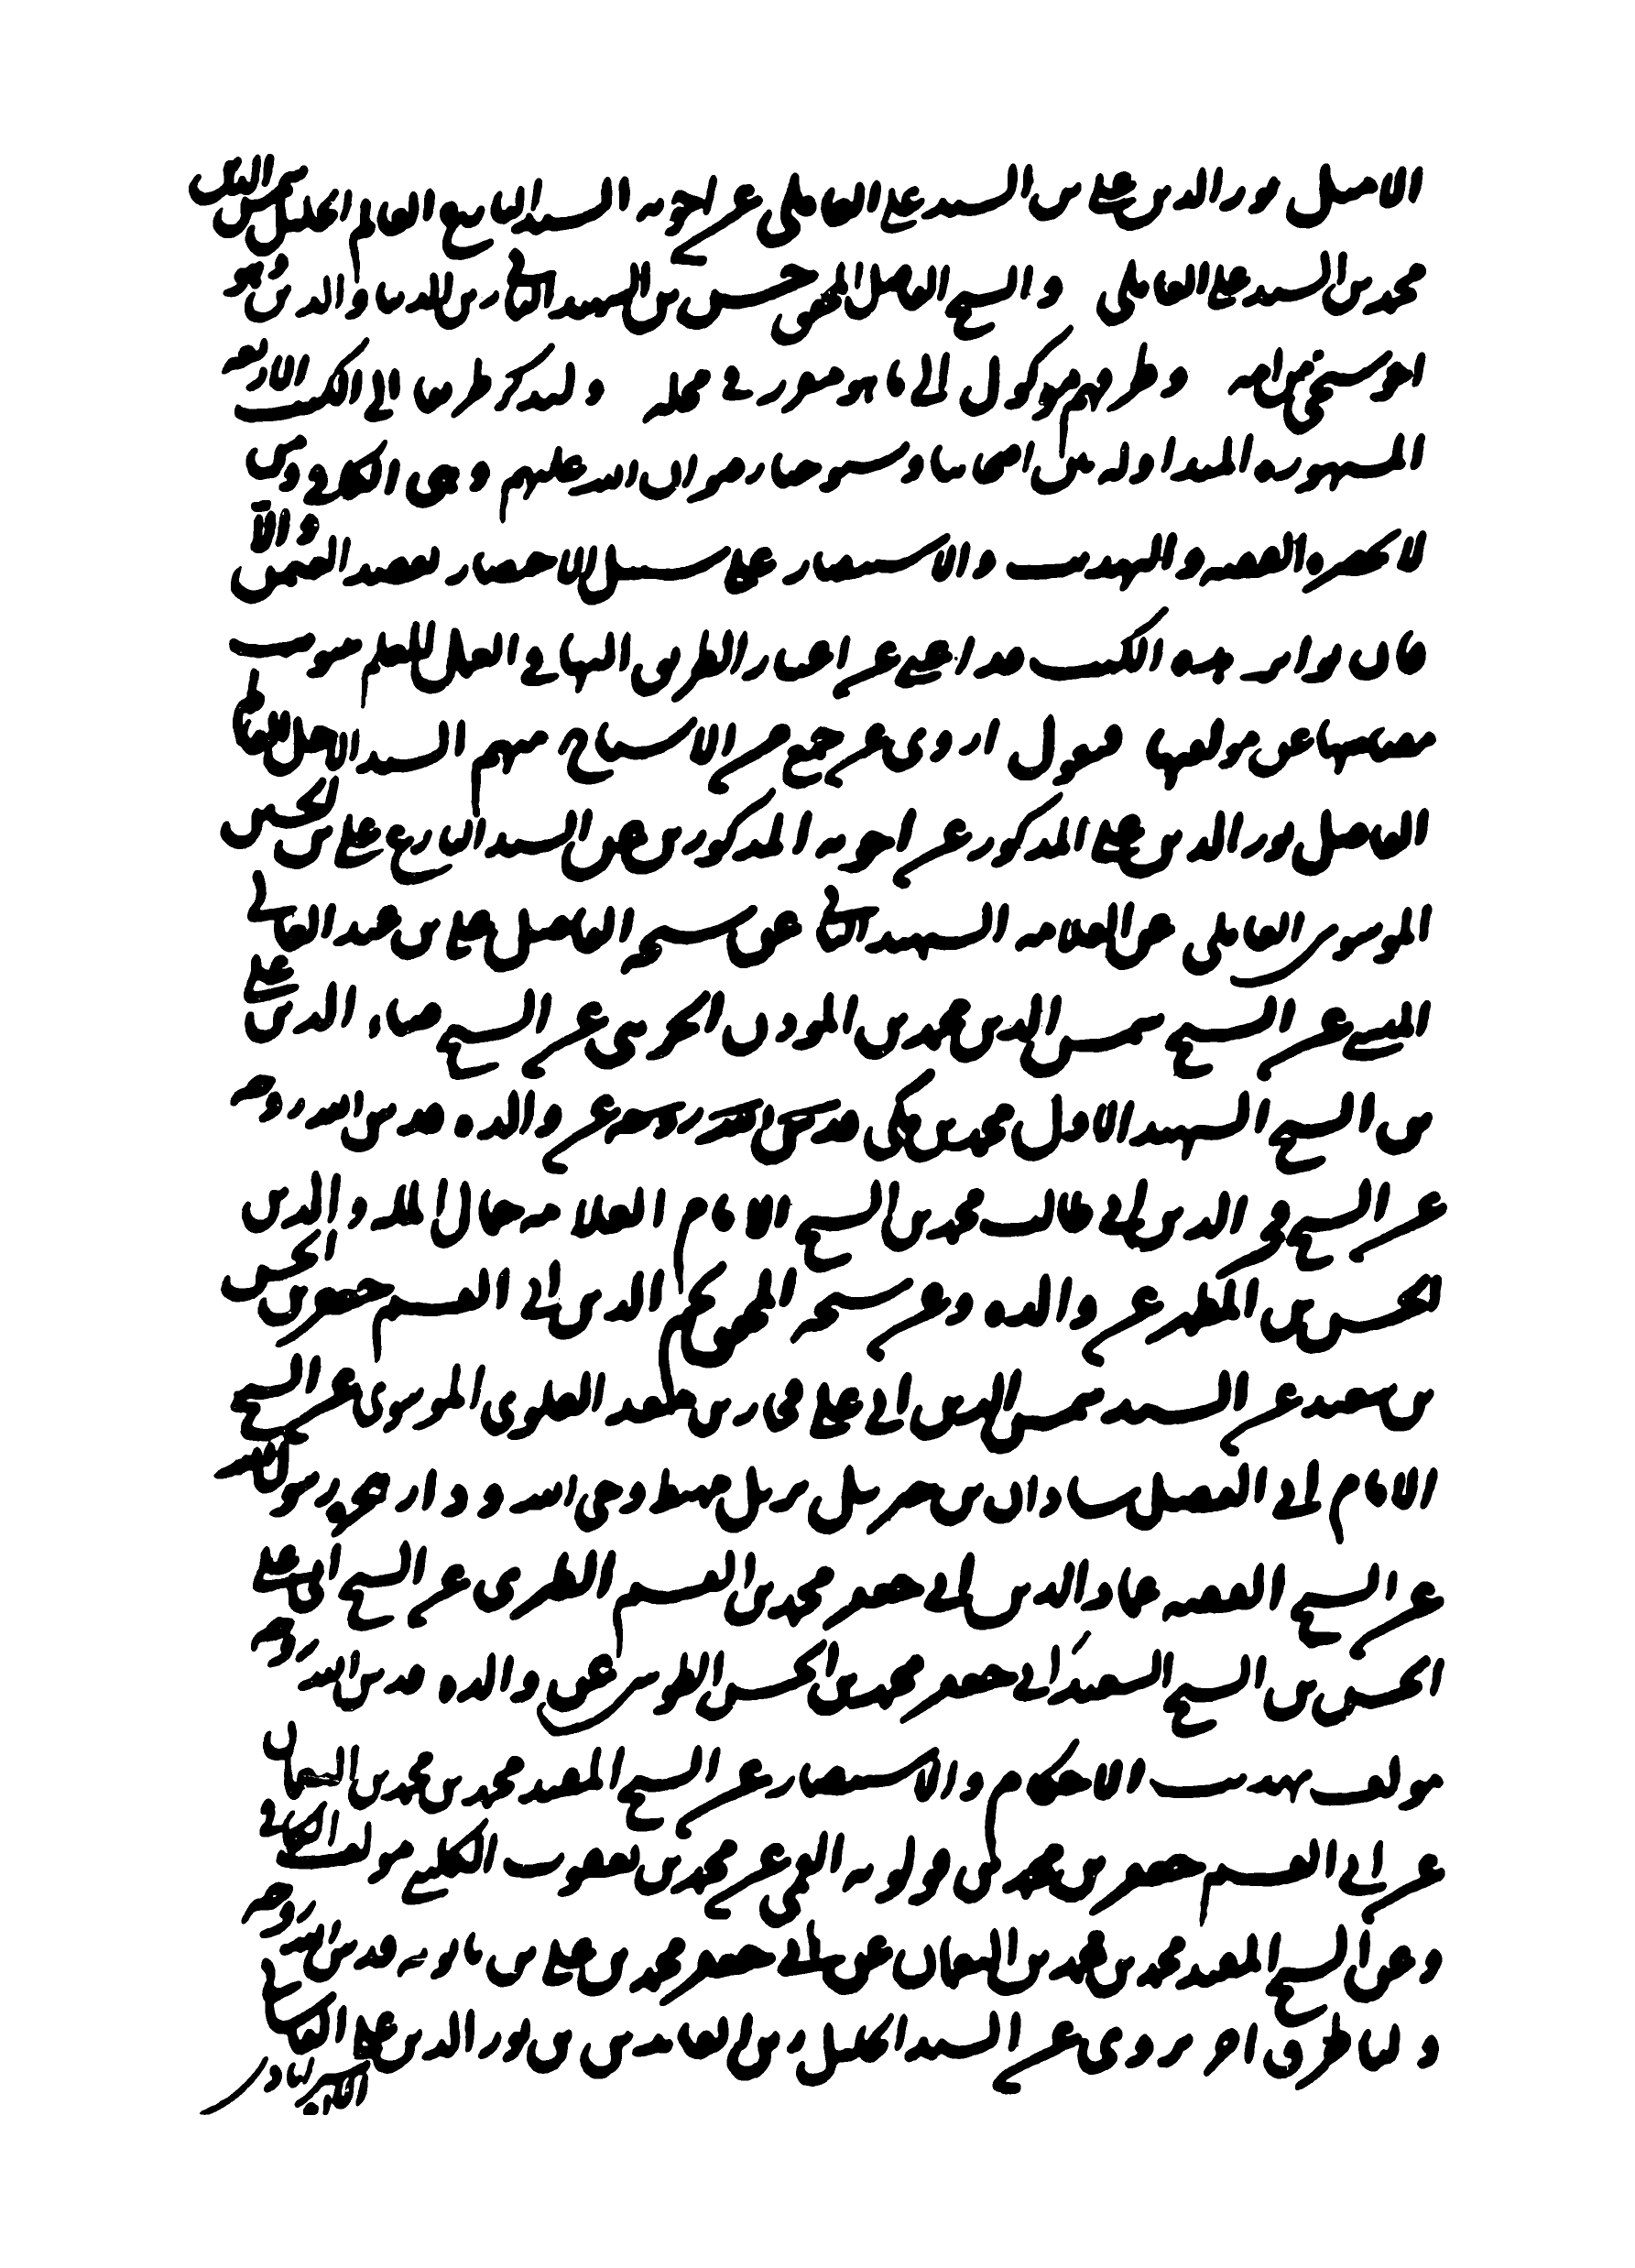 الاصيل نور الدين علي بن السيد علي العاملي عن اخويه السيد البارع العالم الجليل شمس الدين
محمد بن السيد علي العاملي والشيخ الفاضل المحقق حسن بن الشهيد الثاني زين الملة والدين
وطرقهم موكول الى ما هو مزبور في محله ولنذكر طريقا الى الكتب الاربعة
المشهورة المتداولة بين اصحابنا ومشايخنا رضوان الله عليهم وهي الكافي ومن
لا يحضره الفقيه والتهذيب والاستبصار على سبيل الاختصار لقصد التيمن والا
فان تواتر هذه الكتب قد اغنى عن اعتبار الطريق اليها في العمل للعلم بثبوت
مضامينها عن مؤلفيها فنقول اروى عن جمع من الاشياخ منهم السيد الاجل
الفاضل نور الدين علي المذكور عن اخويه المذكورين عن السيد البارع علي بن الحسين
الموسوي العاملي عن العلامة الشهيد الثاني عن شيخه الفاضل علي بن عبد العالي
الميسي عن الشيخ شمس الدين محمد بن المؤذن الجزيني عن الشيخ ضياء الدين علي
بن الشيخ الشهيد الاول محمد بن مكي قدس الله روحه عن والده قدس الله روحه
عن الشيخ فخر الدين ابي طالب محمد بن الشيخ الامام العلامة جمال الملة والدين
الحسن بن المطهر عن والده وعن شيخه المحقق نجم الدين ابي القسم جعفر بن الحسن
بن سعيد عن السيد شمس الدين ابي علي فخار بن معد العلوي الموسوي عن الشيخ
الامام ابي الفضل شاذان بن جبرئيل نزيل مهبط وحي الله ودار هجرة رسول الله
عن الشيخ الفقيه عماد الدين ابي جعفر محمد بن القسم الطبري عن الشيخ ابي علي
الحسن بن الشيخ السعيد ابي جعفر محمد بن الحسن الطوسي عن والده قدس الله روحه
مؤلف تهذيب الاحكام والاستبصار عن الشيخ المفيد محمد بن محمد بن النعمان
عن ابي القسم جعفر بن محمد بن قولويه القمي عن محمد بن يعقوب الكليني مؤلف الكافي
وعن الشيخ المفيد محمد بن محمد بن النعمان عن ابي جعفر محمد بن علي بن بابويه قدس الله روحه
ولنا طرق اخر نروى عن السيد الجليل زين العابدين بن نور الدين علي الكاشاني